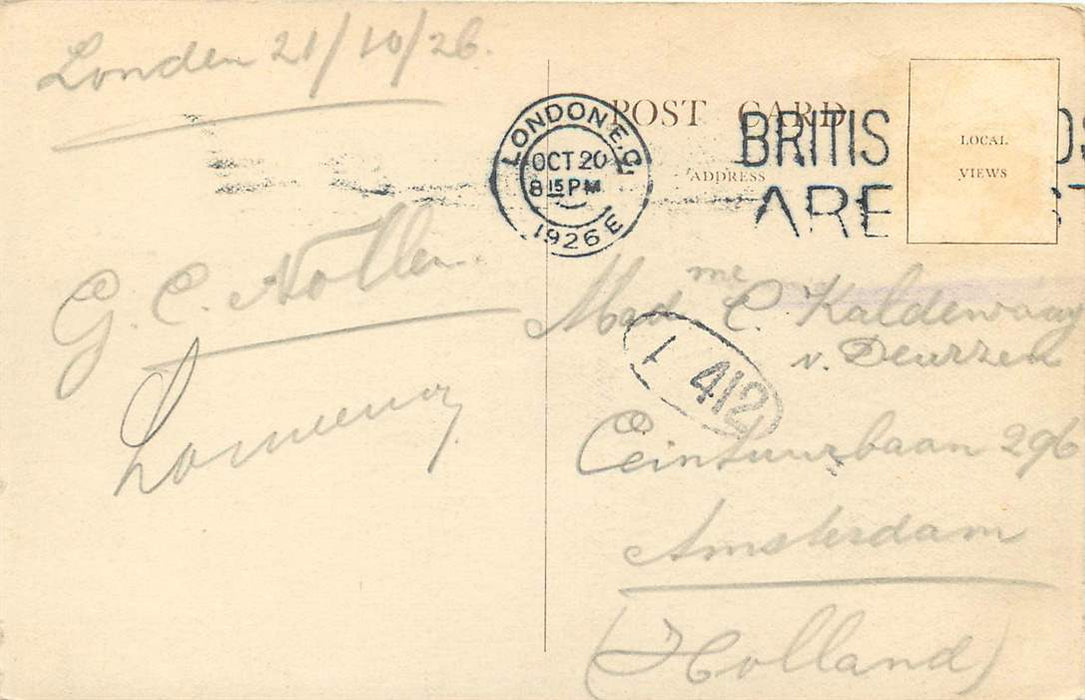 Londen 21/10/26.
G. C. Nollen.
POST CARD
ADDRESS
LONDON E.C.
OCT 20
8 15 PM
1926
E
BRITIS
ARE
LOCAL
VIEWS
Madme C. Kaldewaay
v. Deurzen
1 412
Ceintuurbaan 296
Amsterdam
(Holland)